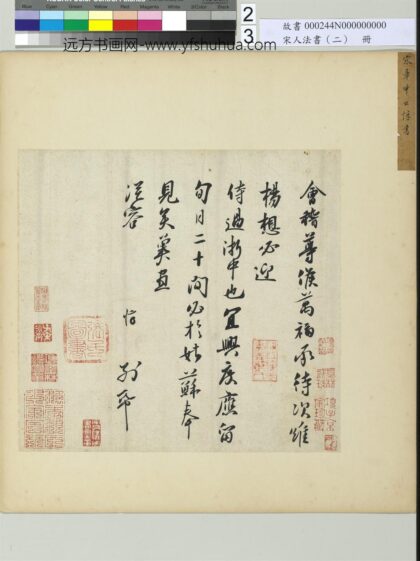 远方书画网 www.yfshuhua.com
Cyan Green Yellow Red Magenta White 3/Color Black
2
3
故書 000244N000000000
宋人法書（二） 冊
宋章申公惇書
會稽尊候萬福承待次維
楊想必迎
侍過浙中也宜興度應留
旬日二十間必於姑蘇奉
見矣冀盡
從容
惇